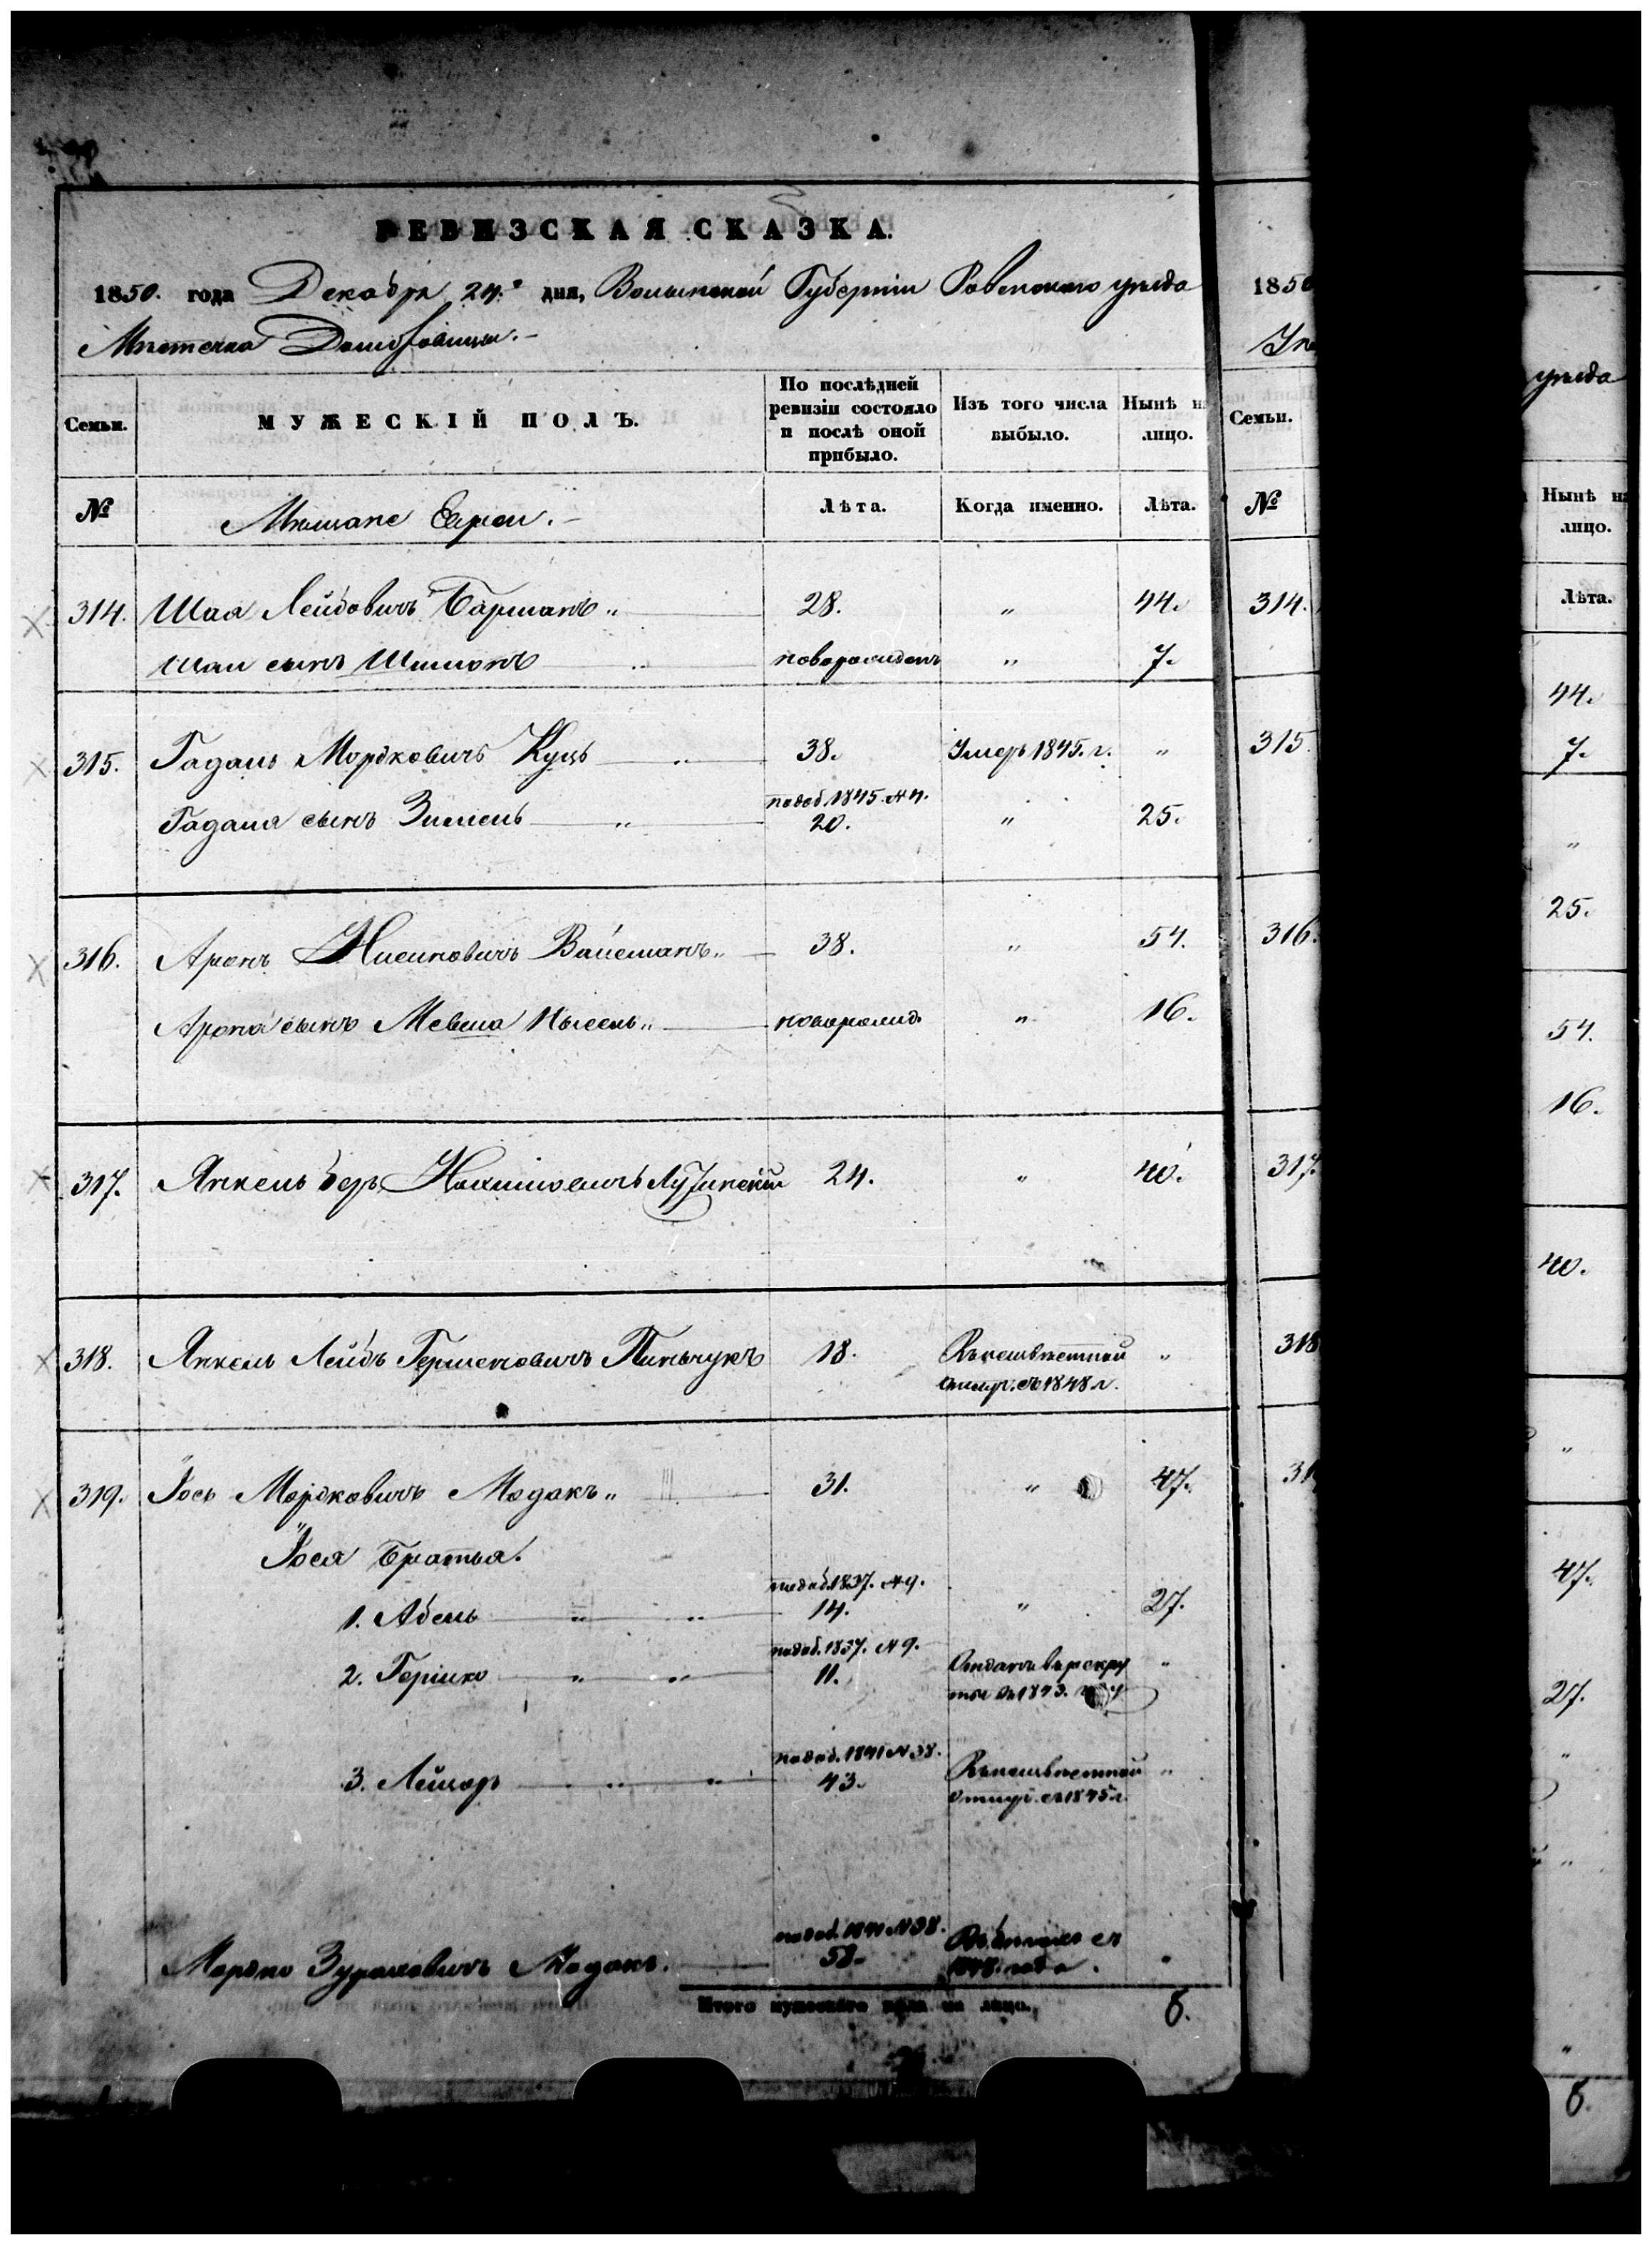 РЕВИЗСКАЯ СКАЗКА.
1850. года Декабря 24.го дня, Волынской Губерніи Ровенскаго уѣзда
Мѣстечка Домбровицы.
Семьи. МУЖЕСКІЙ ПОЛЪ. По послѣдней ревизіи состояло и послѣ оной прибыло. Изъ того числа выбыло. Нынѣ н лицо.
№ Мѣщане Евреи. Лѣта. Когда именно. Лѣта.
314. Шая Лейбовичъ Барманъ „ 28. „ 44.
Шаи сынъ Шимонъ „ новорожденъ „ 7.
315. Гадаль Мордковичъ Куцъ „ 38. Умеръ 1845. г. „
Гадаля сынъ Зимель „ по доб. 1845 № 4. 20. „ 25.
316. Аронъ Нисиновичъ Вайсманъ „ 38. „ 54.
Арона сынъ Мевша Нысель „ новорожд. „ 16.
317. Янкель Беръ 24. „ 40.
318. Янкель Лейбъ Гершеновичъ Пиньчукъ 18. Въ безъвѣстной отлуч. съ 1848 г. „
319. Іось Мордковичъ Модакъ „ 31. „ 47.
Іося братья.
1. Абель „ „ по доб. 1837. № 9. 14. „ 27.
2. Гершко „ „ по доб. 1837. № 9. 11. Отданъ въ рекруты въ 1843. году „
3. Лейзоръ „ „ по доб. 1841 № 38. 43. Въ безъвѣстной отлуч. съ 1845 г. „
Мордко Модакъ. по доб. 1841 № 38. 58. съ 1848. года. „
Итого мужескаго пола на лицо. 6.
1850
Семьи.
№
314.
315.
316.
317.
318
31
уѣзда
Нынѣ н
лицо.
Лѣта.
44.
7.
„
25.
54.
16.
40.
„
47.
27.
„
„
„
6.